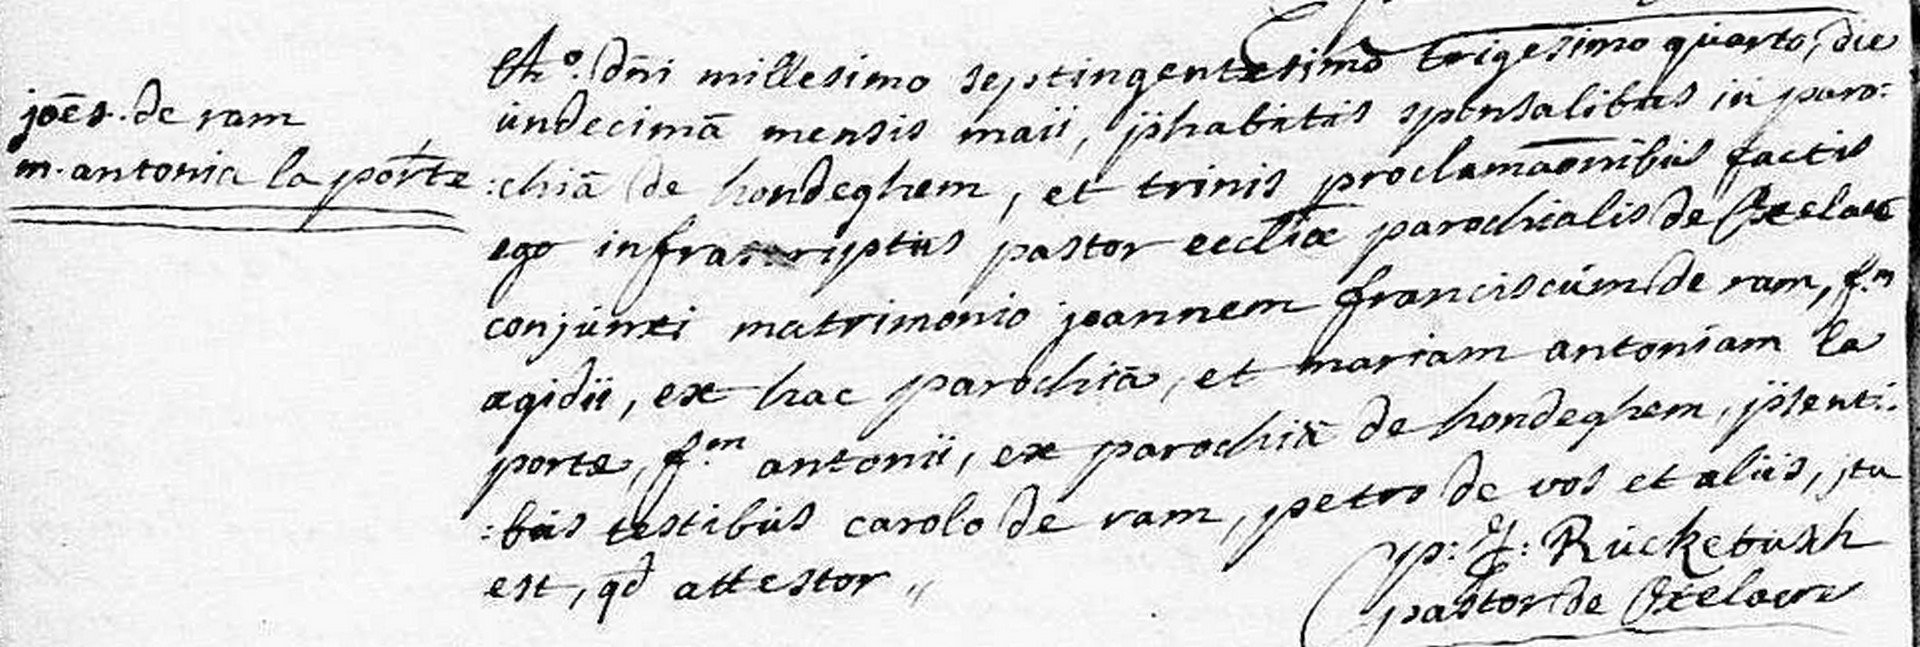 joēs. de ram
m. antonia la porte
Aº. dñi millesimo septingentesimo trigesimo quarto, die
undecimā mensis maii, phabitis sponsalibus in paro:
:chiā de hondeghem, et trinis proclamaōnibus factis
ego infrascriptus pastor eccliæ parochialis de Oxelaere
conjunxi matrimonio joannem franciscum de ram, f.m
ægidii, ex hac parochiā, et mariam antoniam la
porte, f.am antonii, ex parochiā de hondeghem, psenti:
:bus testibus carolo de ram, petro de vos et aliis, ita
est, qd attestor
p: J: Ruckebusch
pastor de Oxelaere